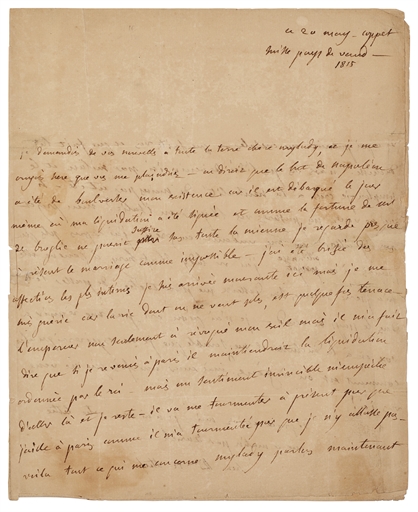 ce 20 may — coppet
suisse pays de vaud —
1815
je demandois de vos nouvelles à toute la terre chère mylady, et je me
croyois sure que vous me plaindriez — on diroit que le but de napoleon
a été de bouleverser mon existence car il est débarqué le jour
même où ma liquidation a été signée et comme la fortune de mr
de broglie ne pouvoit suffire sans toute la mienne je regarde presque
à présent le mariage comme impossible — j'ai été brisée des
affections les plus intimes je suis arrivée mourante ici mais je me
suis guérie car la vie dont on ne veut plus est quelquefois tenace —
l'empereur non seulement a révoqué mon exil mais il m'a fait
dire que si je revenois à paris il maintiendroit la liquidation
ordonnée par le roi — mais un sentiment invincible m'empêche
d'aller là et je reste — il va me tourmenter à présent pour que
j'aille à paris comme il m'a tourmentée pour que je n'y allasse pas —
voila tout ce qui me concerne mylady parlons maintenant